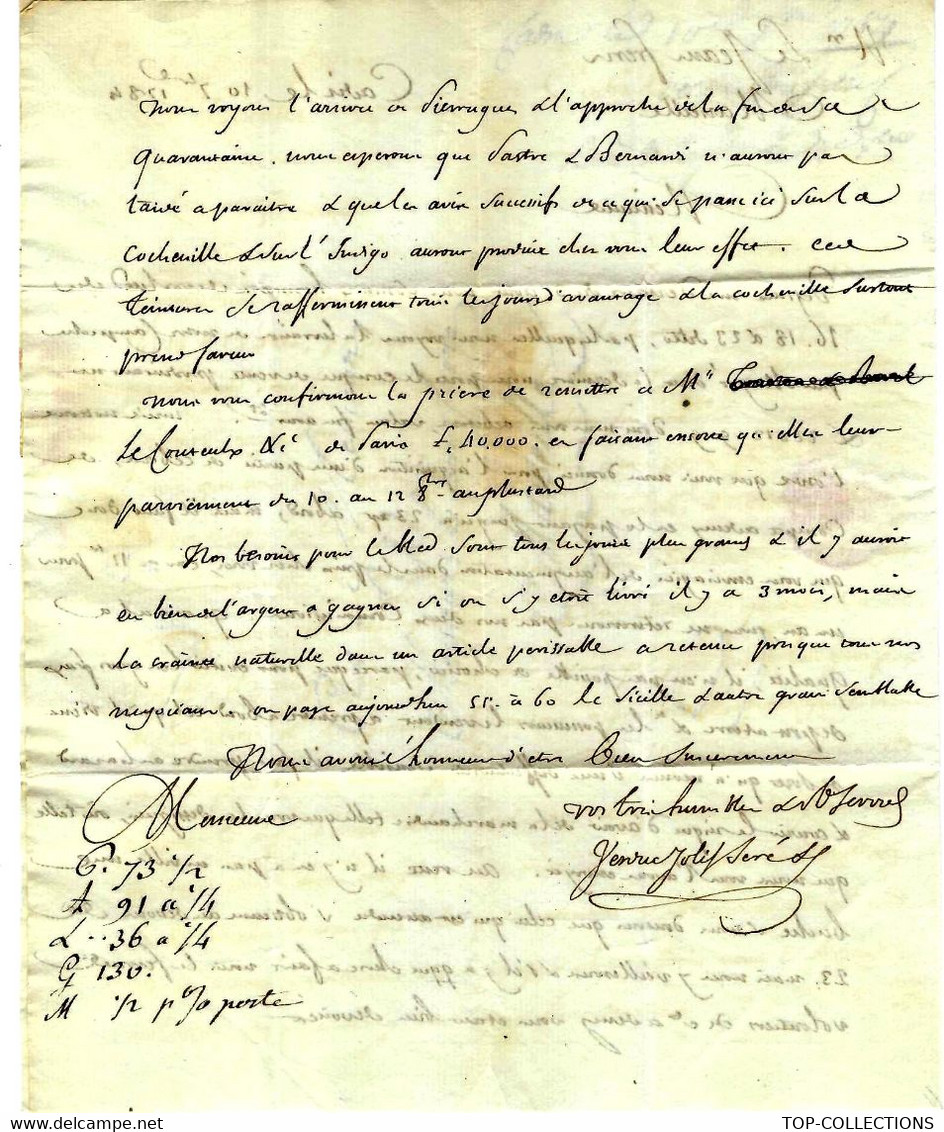 Nous voyons l'arrivée de Pierrugues & l'approche de la fin de sa
Quarantaine. nous esperons que Pastre & Bernardi n'auront pas
tardé a paraitre & que les avis successifs de ce qui se passe ici sur la
Cochenille & sur l'Indigo auront produit chez vous leur effet. ces
teintures se raffermissent tous les jours d'avantage & la cochenille surtout
prend faveur
Nous vous confirmons la priere de remettre a Mrs
Le Couteulx & Ce de Paris £ 40,000. en faisant ensorte qu'elles leur
parviennent du 10. au 12 8bre au plustard
Nos besoins pour le bled sont tous les jours plus grands & il y auroit
eu bien de l'argent a gagner si on s'y etoit livré il y a 3 mois, mais
la crainte naturelle dans un article perissable a retenu presque tous nos
negocians. on paye aujourdhuy 55. à 60 le Sicille & autre grain semblable
Nous avons l'honneur d'etre bien sincerement
Messieurs
vos tres humbles & ob. Serviteurs
Verduc Jolif Seré &
P. 73 1/2
A 91 a 1/4
L .. 36 a 1/4
G 130.
M 1/2 p% perte
TOP-COLLECTIONS